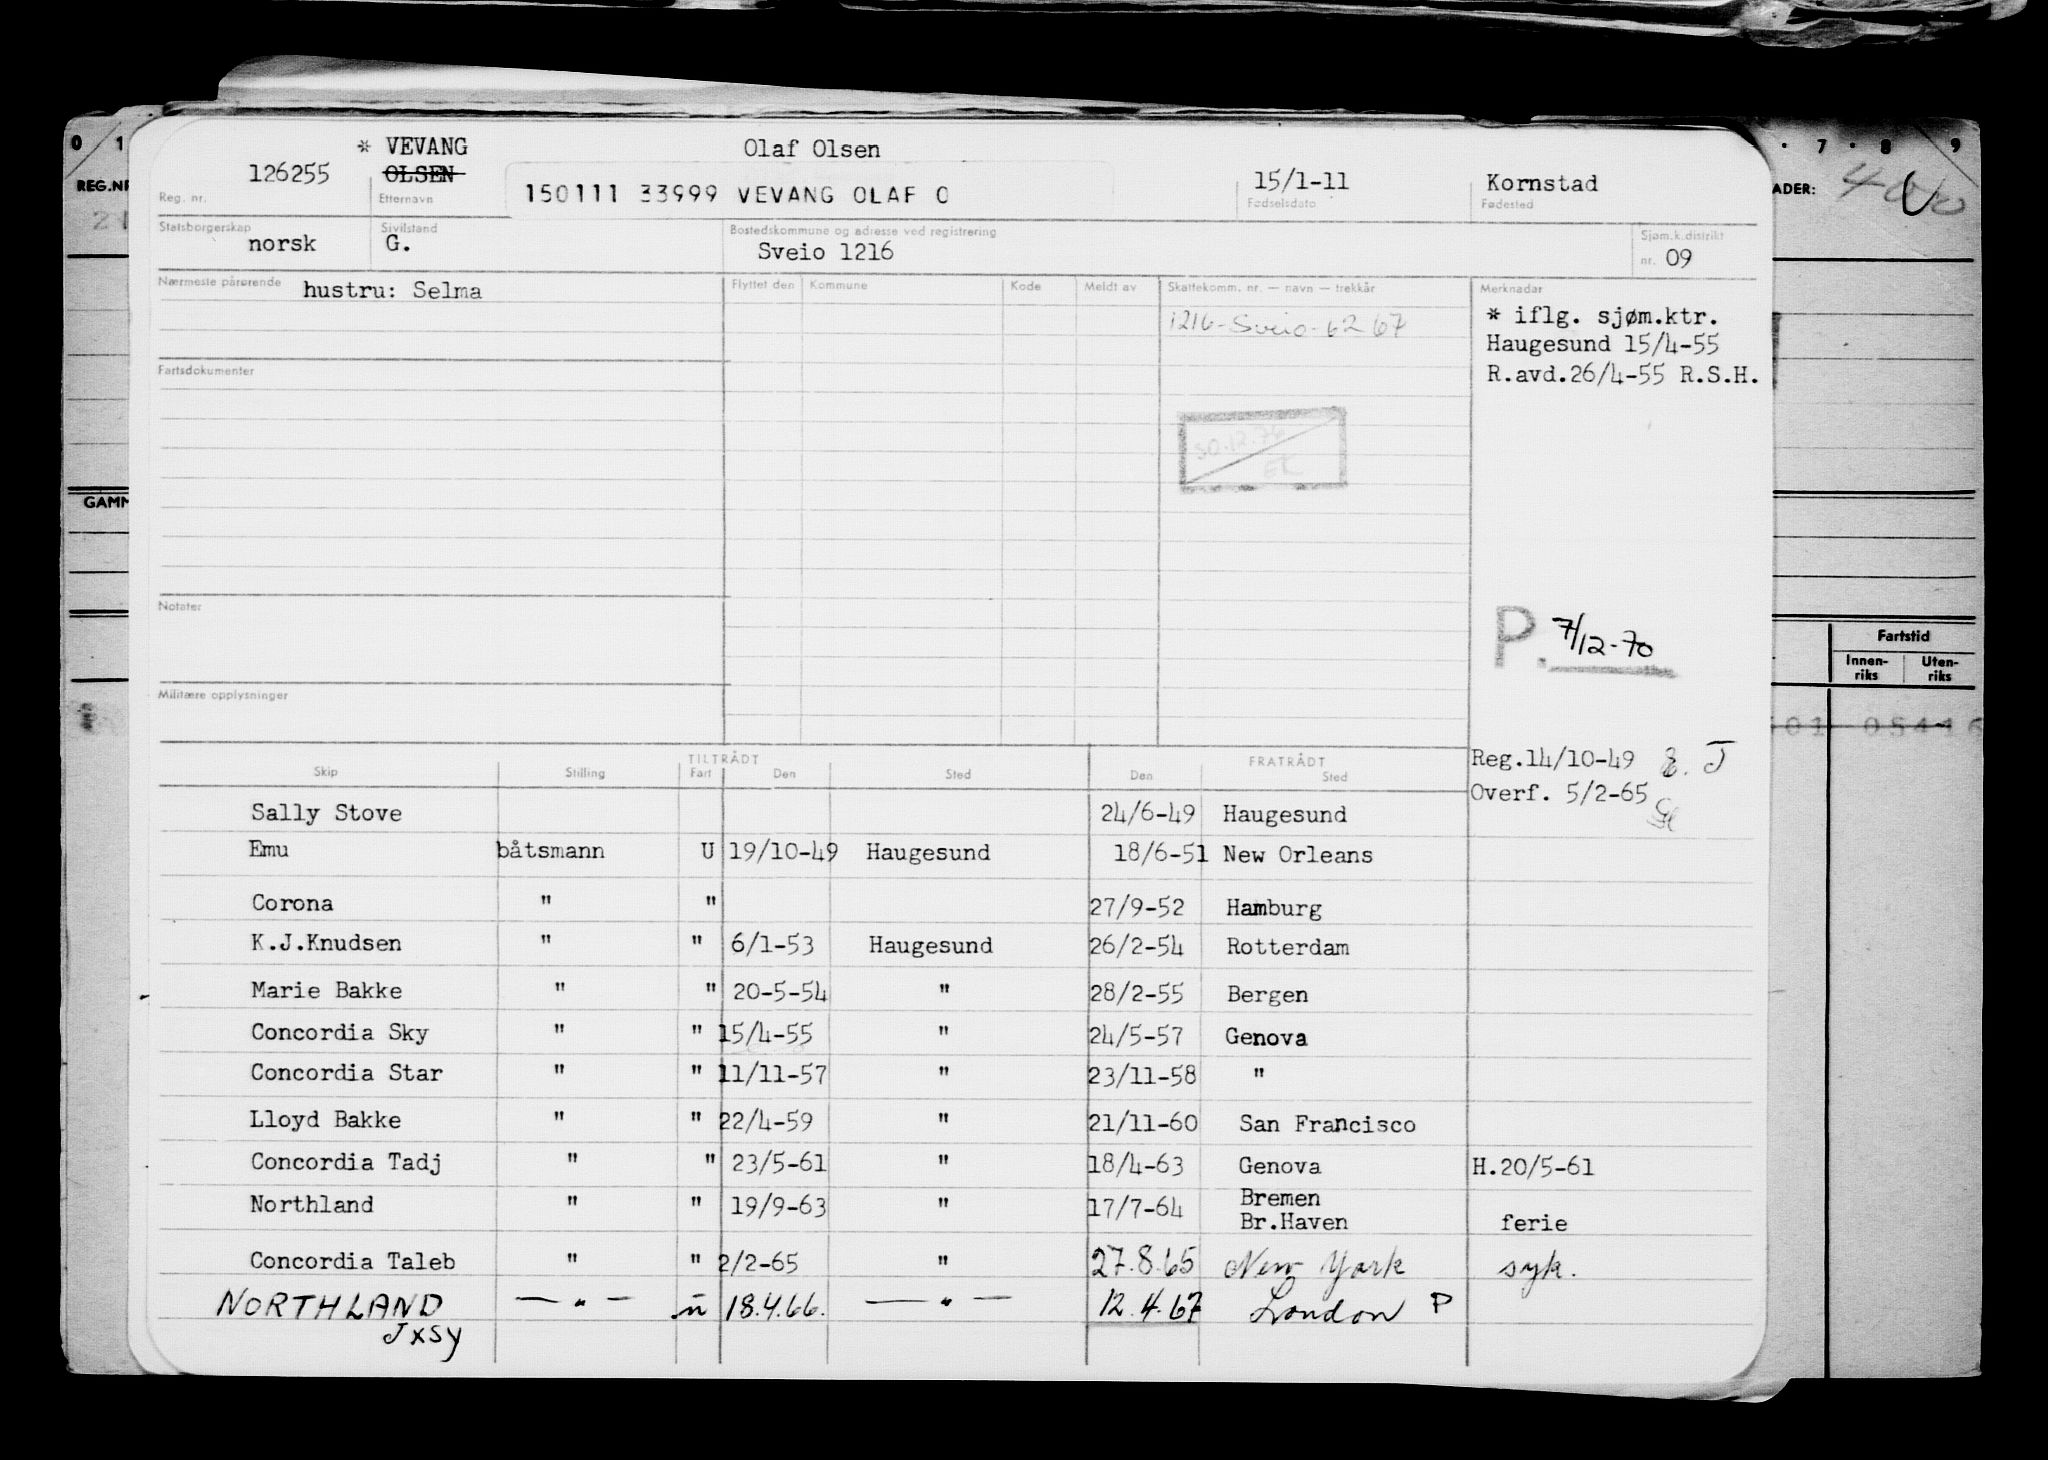 * VEVANG Olaf Olsen
126255 OLSEN 150111 33999 VEVANG OLAF O 15/1-11 Kornstad
Reg. nr. Etternavn Fødselsdato Fødested
Statsborgerskap norsk Sivilstand G. Bostedskommune og adresse ved registrering Sveio 1216 Sjøm.k.distrikt nr. 09
Nærmeste pårørende hustru: Selma Flyttet den Kommune Kode Meldt av Skattekomm. nr. — navn — trekkår Merknader
1216-Sveio-62 67
* iflg. sjøm.ktr.
Haugesund 15/4-55
R.avd.26/4-55 R.S.H.
Fartsdokumenter
30.12.76
Notater
P. 7/12-70
Militære opplysninger
TILTRÅDT FRATRÅDT
Skip Stilling Fart Den Sted Den Sted
Reg.14/10-49
Overf. 5/2-65
Sally Stove 24/6-49 Haugesund
Emu båtsmann U 19/10-49 Haugesund 18/6-51 New Orleans
Corona " " 27/9-52 Hamburg
K.J.Knudsen " " 6/1-53 Haugesund 26/2-54 Rotterdam
Marie Bakke " " 20-5-54 " 28/2-55 Bergen
Concordia Sky " " 15/4-55 " 24/5-57 Genova
Concordia Star " " 11/11-57 " 23/11-58 "
Lloyd Bakke " " 22/4-59 " 21/11-60 San Francisco
Concordia Tadj " " 23/5-61 " 18/4-63 Genova H.20/5-61
Northland " " 19/9-63 " 17/7-64 Bremen
Br.Haven ferie
Concordia Taleb " " 2/2-65 " 27.8.65 New York syk.
NORTHLAND — " — u 18.4.66. — " — 12.4.67 London P
JXSY
0 1
REG.NR
21
GAMM
7 8 9
ADER:
Fartstid
Innen-riks Uten-riks